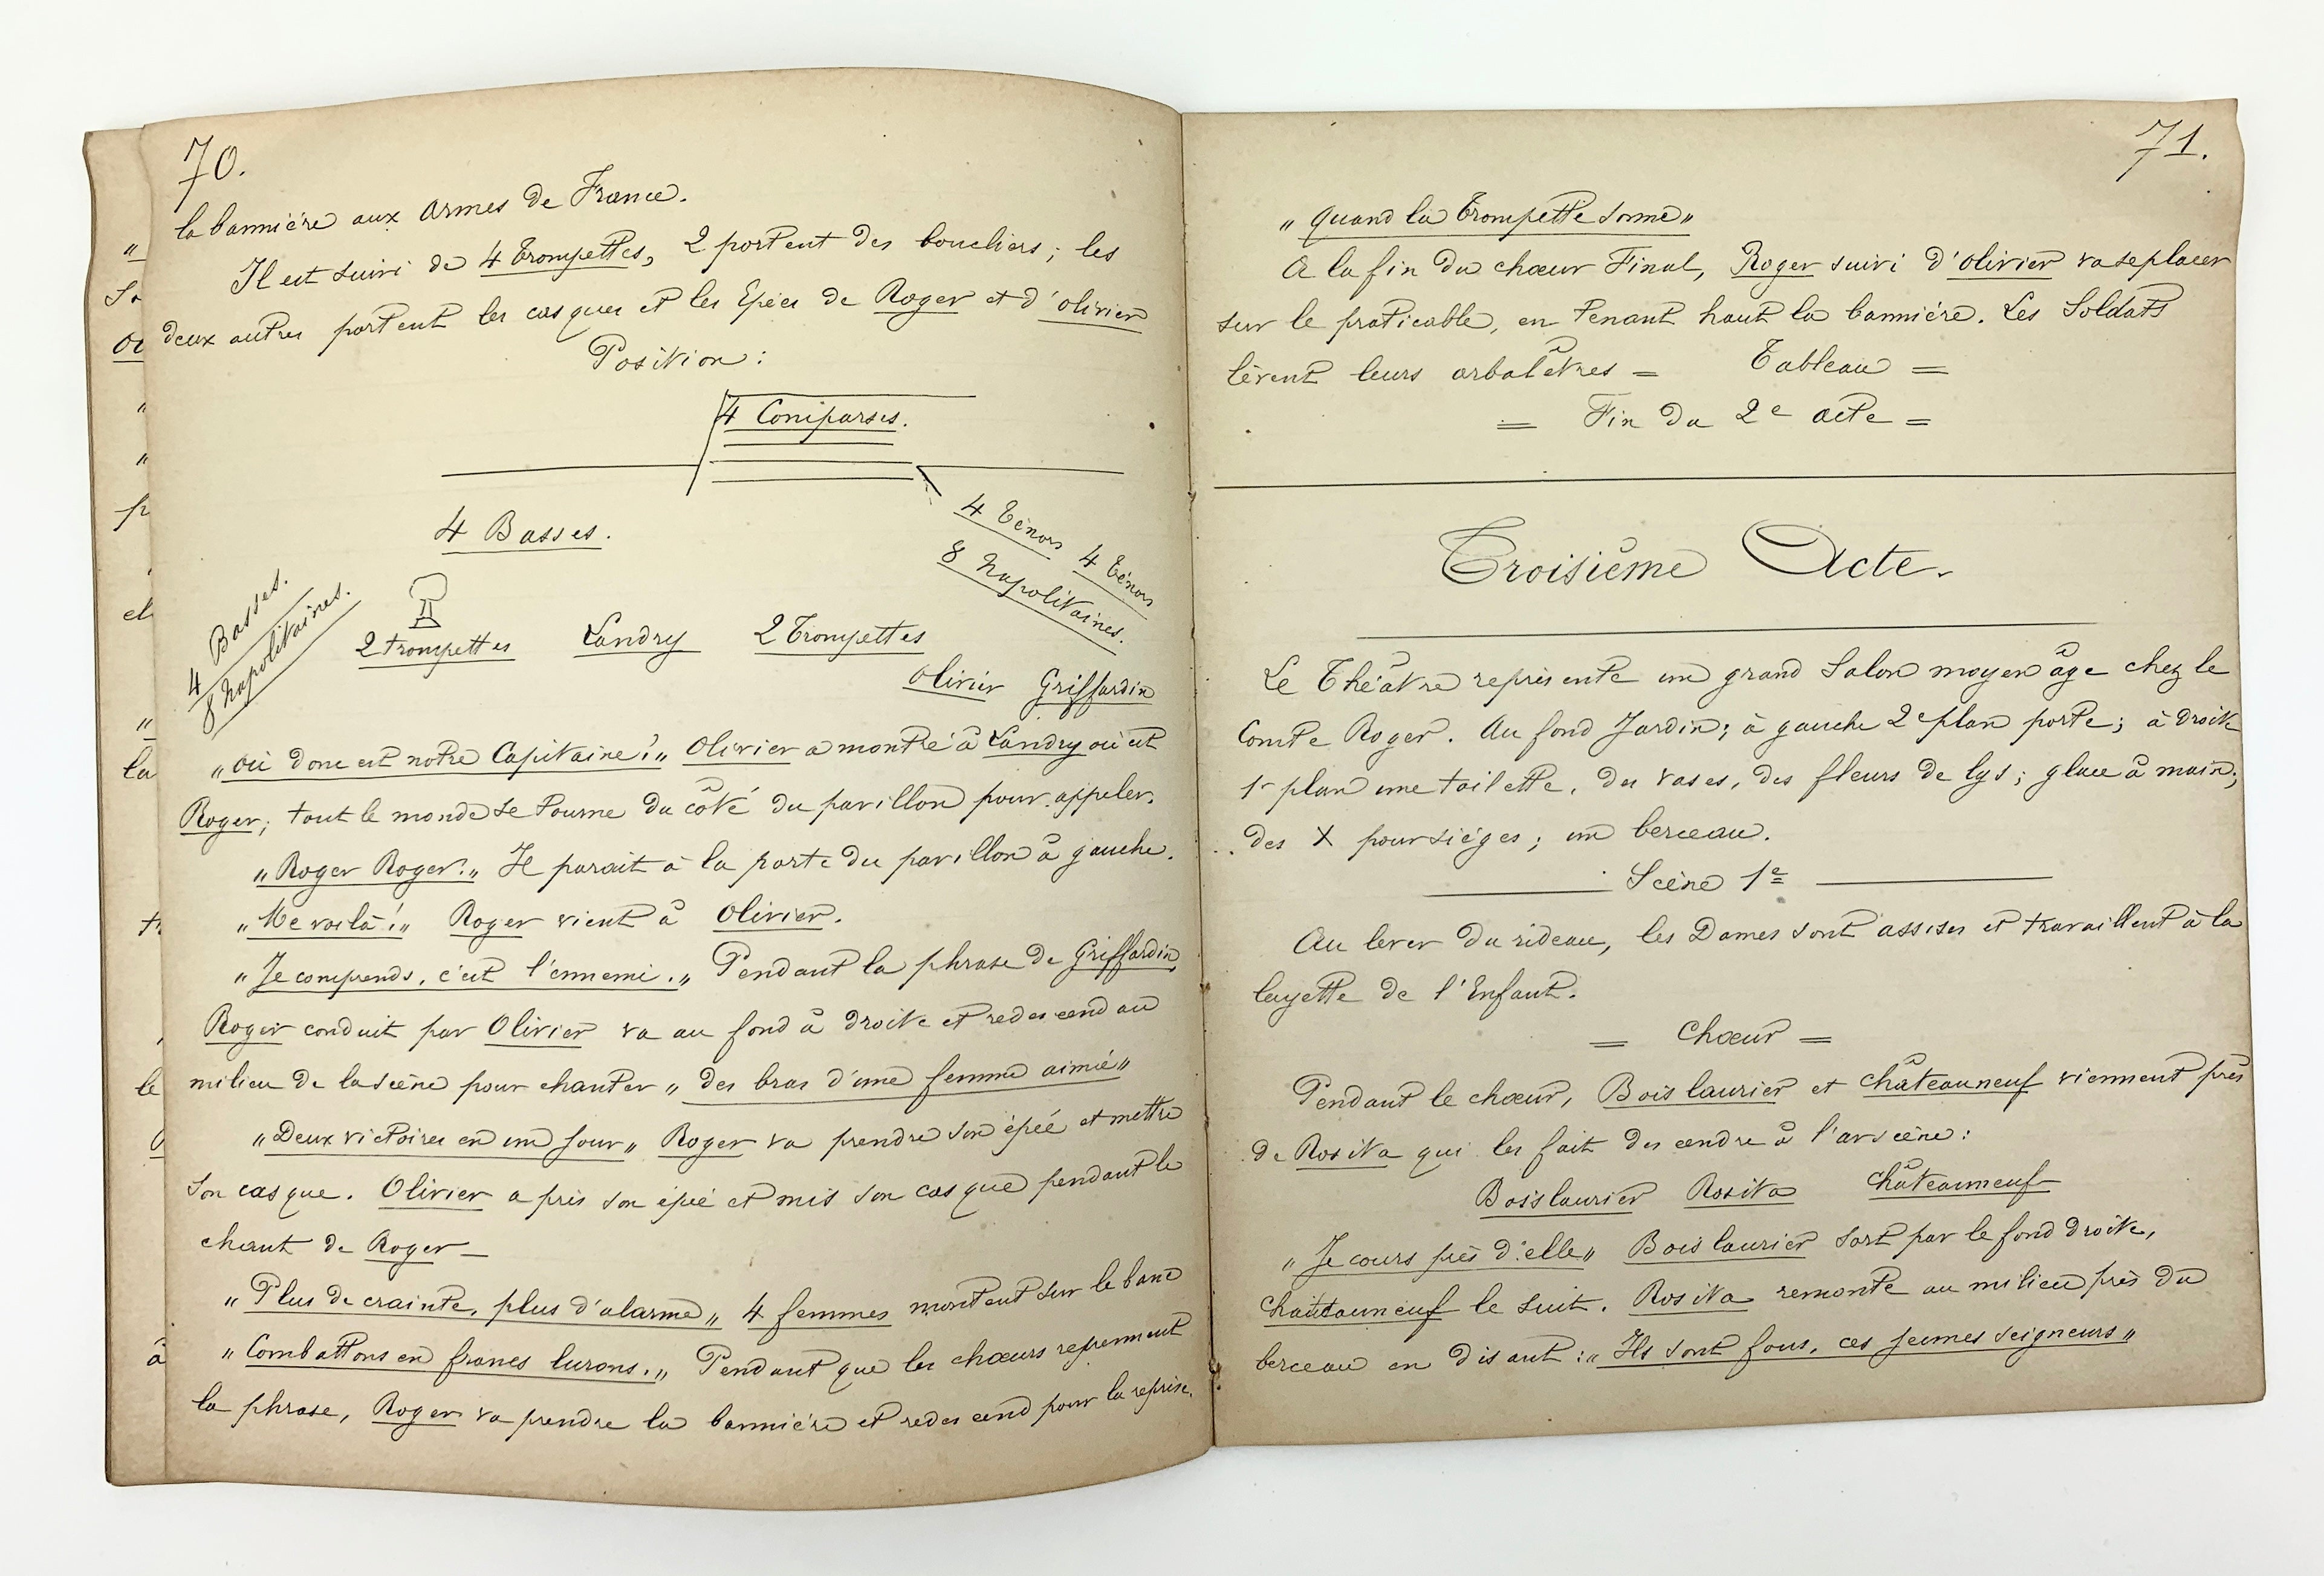 70.
la bannière aux armes de France.
Il est suivi de 4 trompettes, 2 portent des boucliers; les
deux autres portent les casques et les Epées de Roger et d'olivier
Position:
4 Comparses.
4 Basses.
4 Ténors 4 Ténors
8 Napolitaines.
4 Basses.
8 Napolitaines.
2 trompettes Landry 2 Trompettes
Olivier Griffardin
"où donc est notre Capitaine?" Olivier a montré à Landry où est
Roger; tout le monde se tourne du côté du pavillon pour appeler.
"Roger Roger!" Il parait à la porte du pavillon à gauche.
"Me voilà!" Roger vient à Olivier.
"Je comprends, c'est l'ennemi." Pendant la phrase de Griffardin
Roger conduit par Olivier va au fond à droite et redescend au
milieu de la scène pour chanter "des bras d'une femme aimée"
"Deux victoires en un jour" Roger va prendre son épée et mettre
son casque. Olivier a pris son épée et mis son casque pendant le
chant de Roger—
"Plus de crainte, plus d'alarme" 4 femmes montent sur le banc
"Combattons en francs lurons." Pendant que les chœurs reprennent
la phrase, Roger va prendre la bannière et redescend pour la reprise.
71.
"Quand la trompette sonne"
A la fin du chœur Final, Roger suivi d'olivier va se placer
sur le praticable, en tenant haut la bannière. Les Soldats
lèvent leurs arbalêtres = Tableau =
= Fin du 2e acte =
Troisième Acte.
Le Théâtre représente un grand Salon moyen âge chez le
Comte Roger. Au fond Jardin; à gauche 2e plan porte; à droite
1r plan une toilette, des vases, des fleurs de lys; glace à main;
des X pour sièges; un berceau.
Scène 1e
Au lever du rideau, les Dames sont assises et travaillent à la
layette de l'Enfant.
= Chœur =
Pendant le chœur, Boislaurier et châteauneuf viennent près
de Rosita qui les fait descendre à l'avscène:
Boislaurier Rosita Châteauneuf
"Je cours près d'elle" Boislaurier sort par le fond droite,
Chateauneuf le suit. Rosita remonte au milieu près du
berceau en disant: "Ils sont fous, ces jeunes seigneurs"